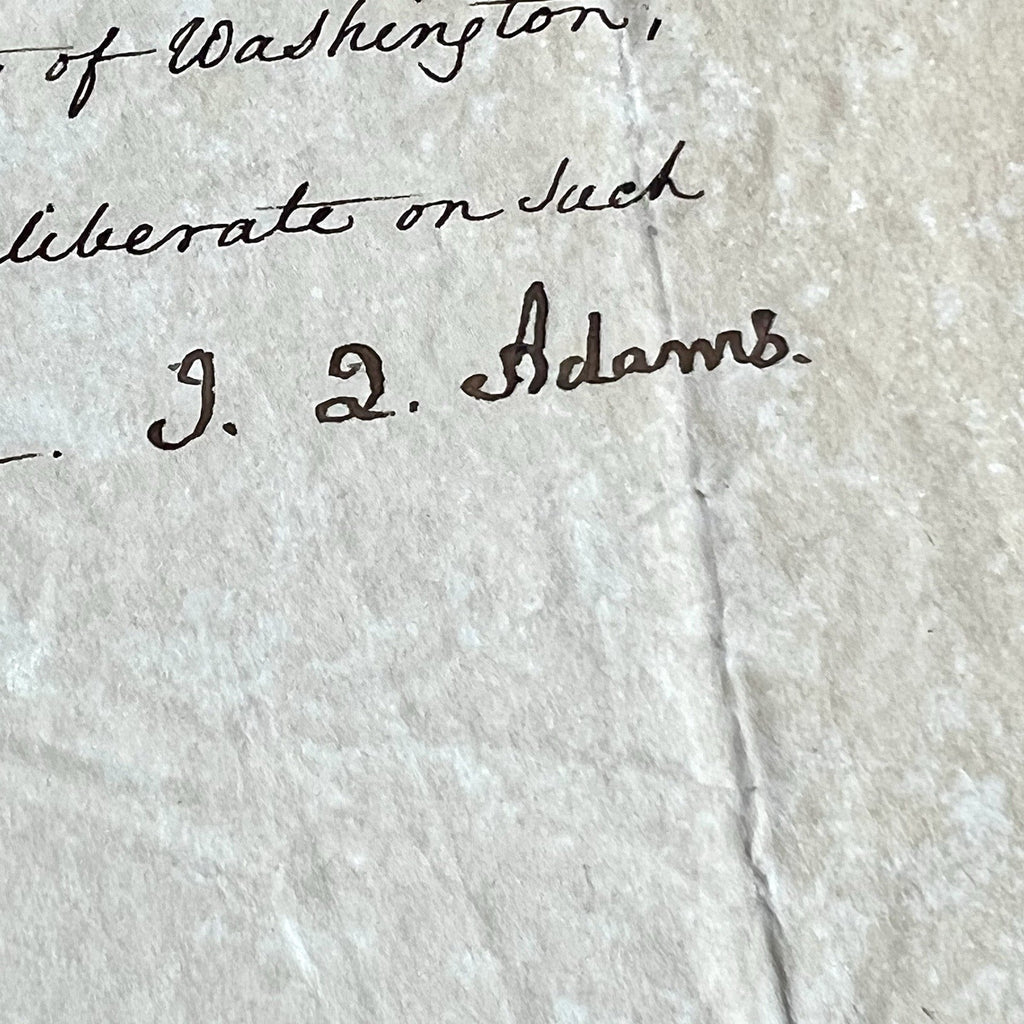 of Washington,
liberate on such
J. Q. Adams.